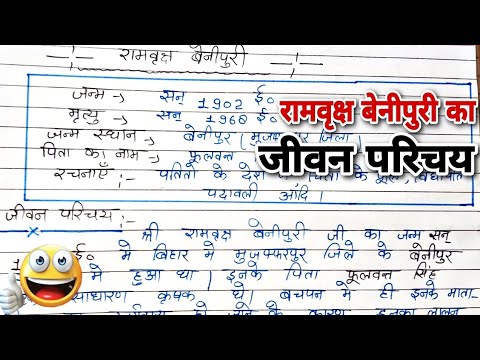 रामवृक्ष बेनीपुरी
जन्म → सन् 1902 ई०
मृत्यु → सन् 1968 ई०
जन्म स्थान → बेनीपुर (मुजफ्फरपुर जिला)
पिता का नाम → फूलवन्त
रचनाएँ :- पतितों के देश के फूल, विद्यापति
पदावली आदि।
रामवृक्ष बेनीपुरी का
जीवन परिचय
जीवन परिचय :-
श्री रामवृक्ष बेनीपुरी जी का जन्म सन्
ई० मे बिहार मे मुजफ्फरपुर जिले के बेनीपुर
मे हुआ था। इनके पिता फूलवन्त सिंह
साधारण कृषक थे। बचपन में ही इनके माता-
के कारण इनका लालन